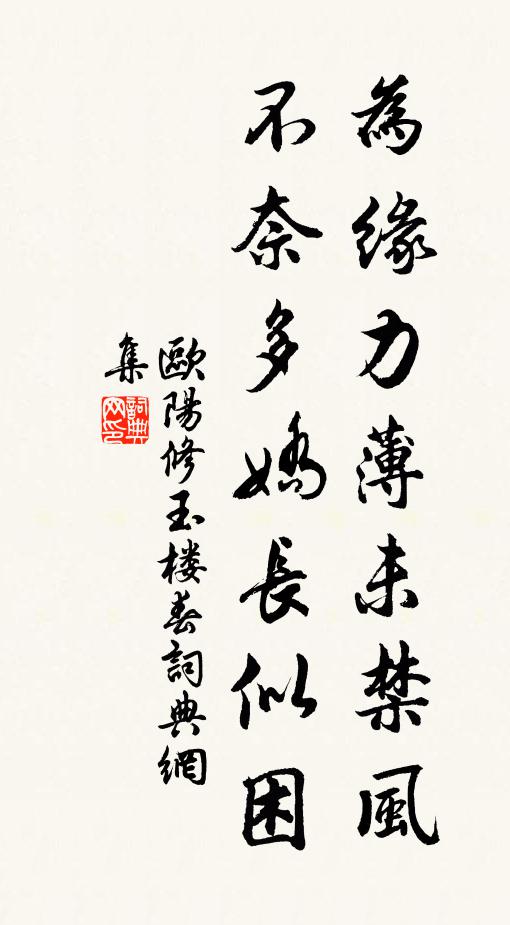 為緣力薄未禁風
不奈多嬌長似困
歐陽修玉楼春詞典網
集
詞典
网印